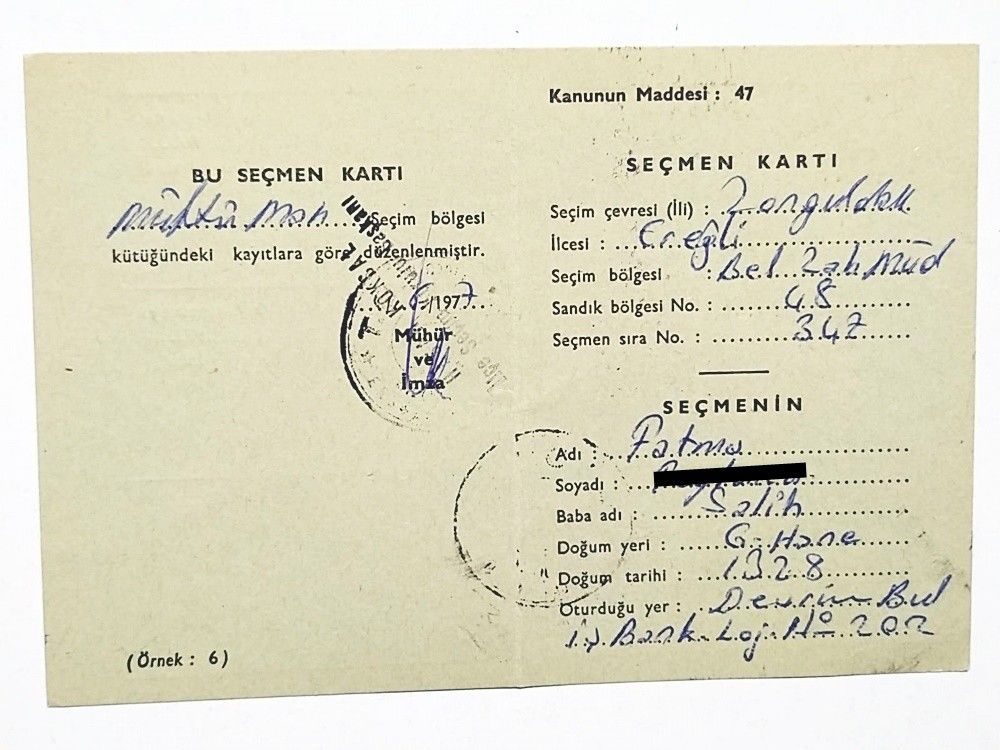 BU SEÇMEN KARTI
Müftü Mah. Seçim bölgesi
kütüğündeki kayıtlara göre düzenlenmiştir.
/1977
Mühür
ve
İmza
(Örnek : 6)
Kanunun Maddesi : 47
SEÇMEN KARTI
Seçim çevresi (İli) : Zonguldak
İlcesi : Ereğli
Seçim bölgesi : Bel
Sandık bölgesi No. : 48
Seçmen sıra No. : 347
SEÇMENİN
Adı : Fatma
Soyadı :
Baba adı : Salih
Doğum yeri : G. Hane
Doğum tarihi : 1328
Oturduğu yer : Devrim Bul
İş Bank Loj. No 202